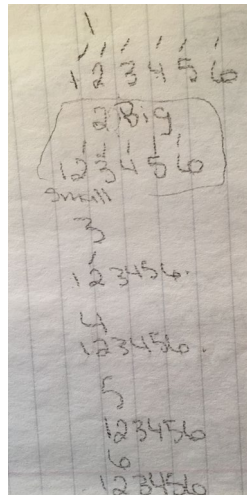 1
1 2 3 4 5 6
2 Big
1 2 3 4 5 6
Small
3
1 2 3 4 5 6.
4
1 2 3 4 5 6.
5
1 2 3 4 5 6
6
1 2 3 4 5 6